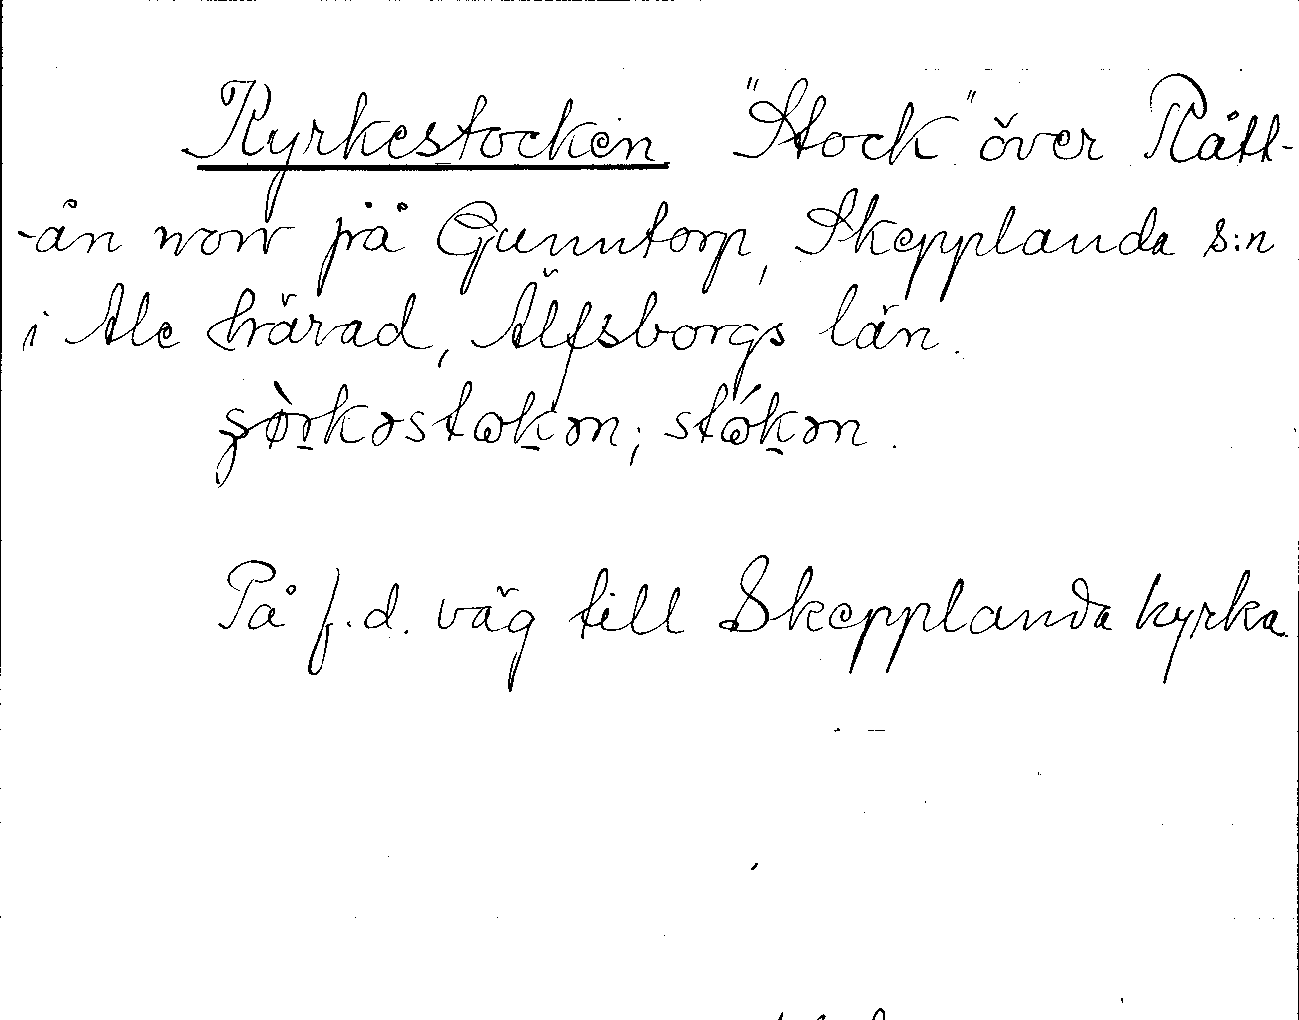 Kyrkestocken "Stock" över Rått-
-ån norr på Gunntorp, Skepplanda s:n
i Ale härad, Älfsborgs län.
På f.d. väg till Skepplanda kyrka.